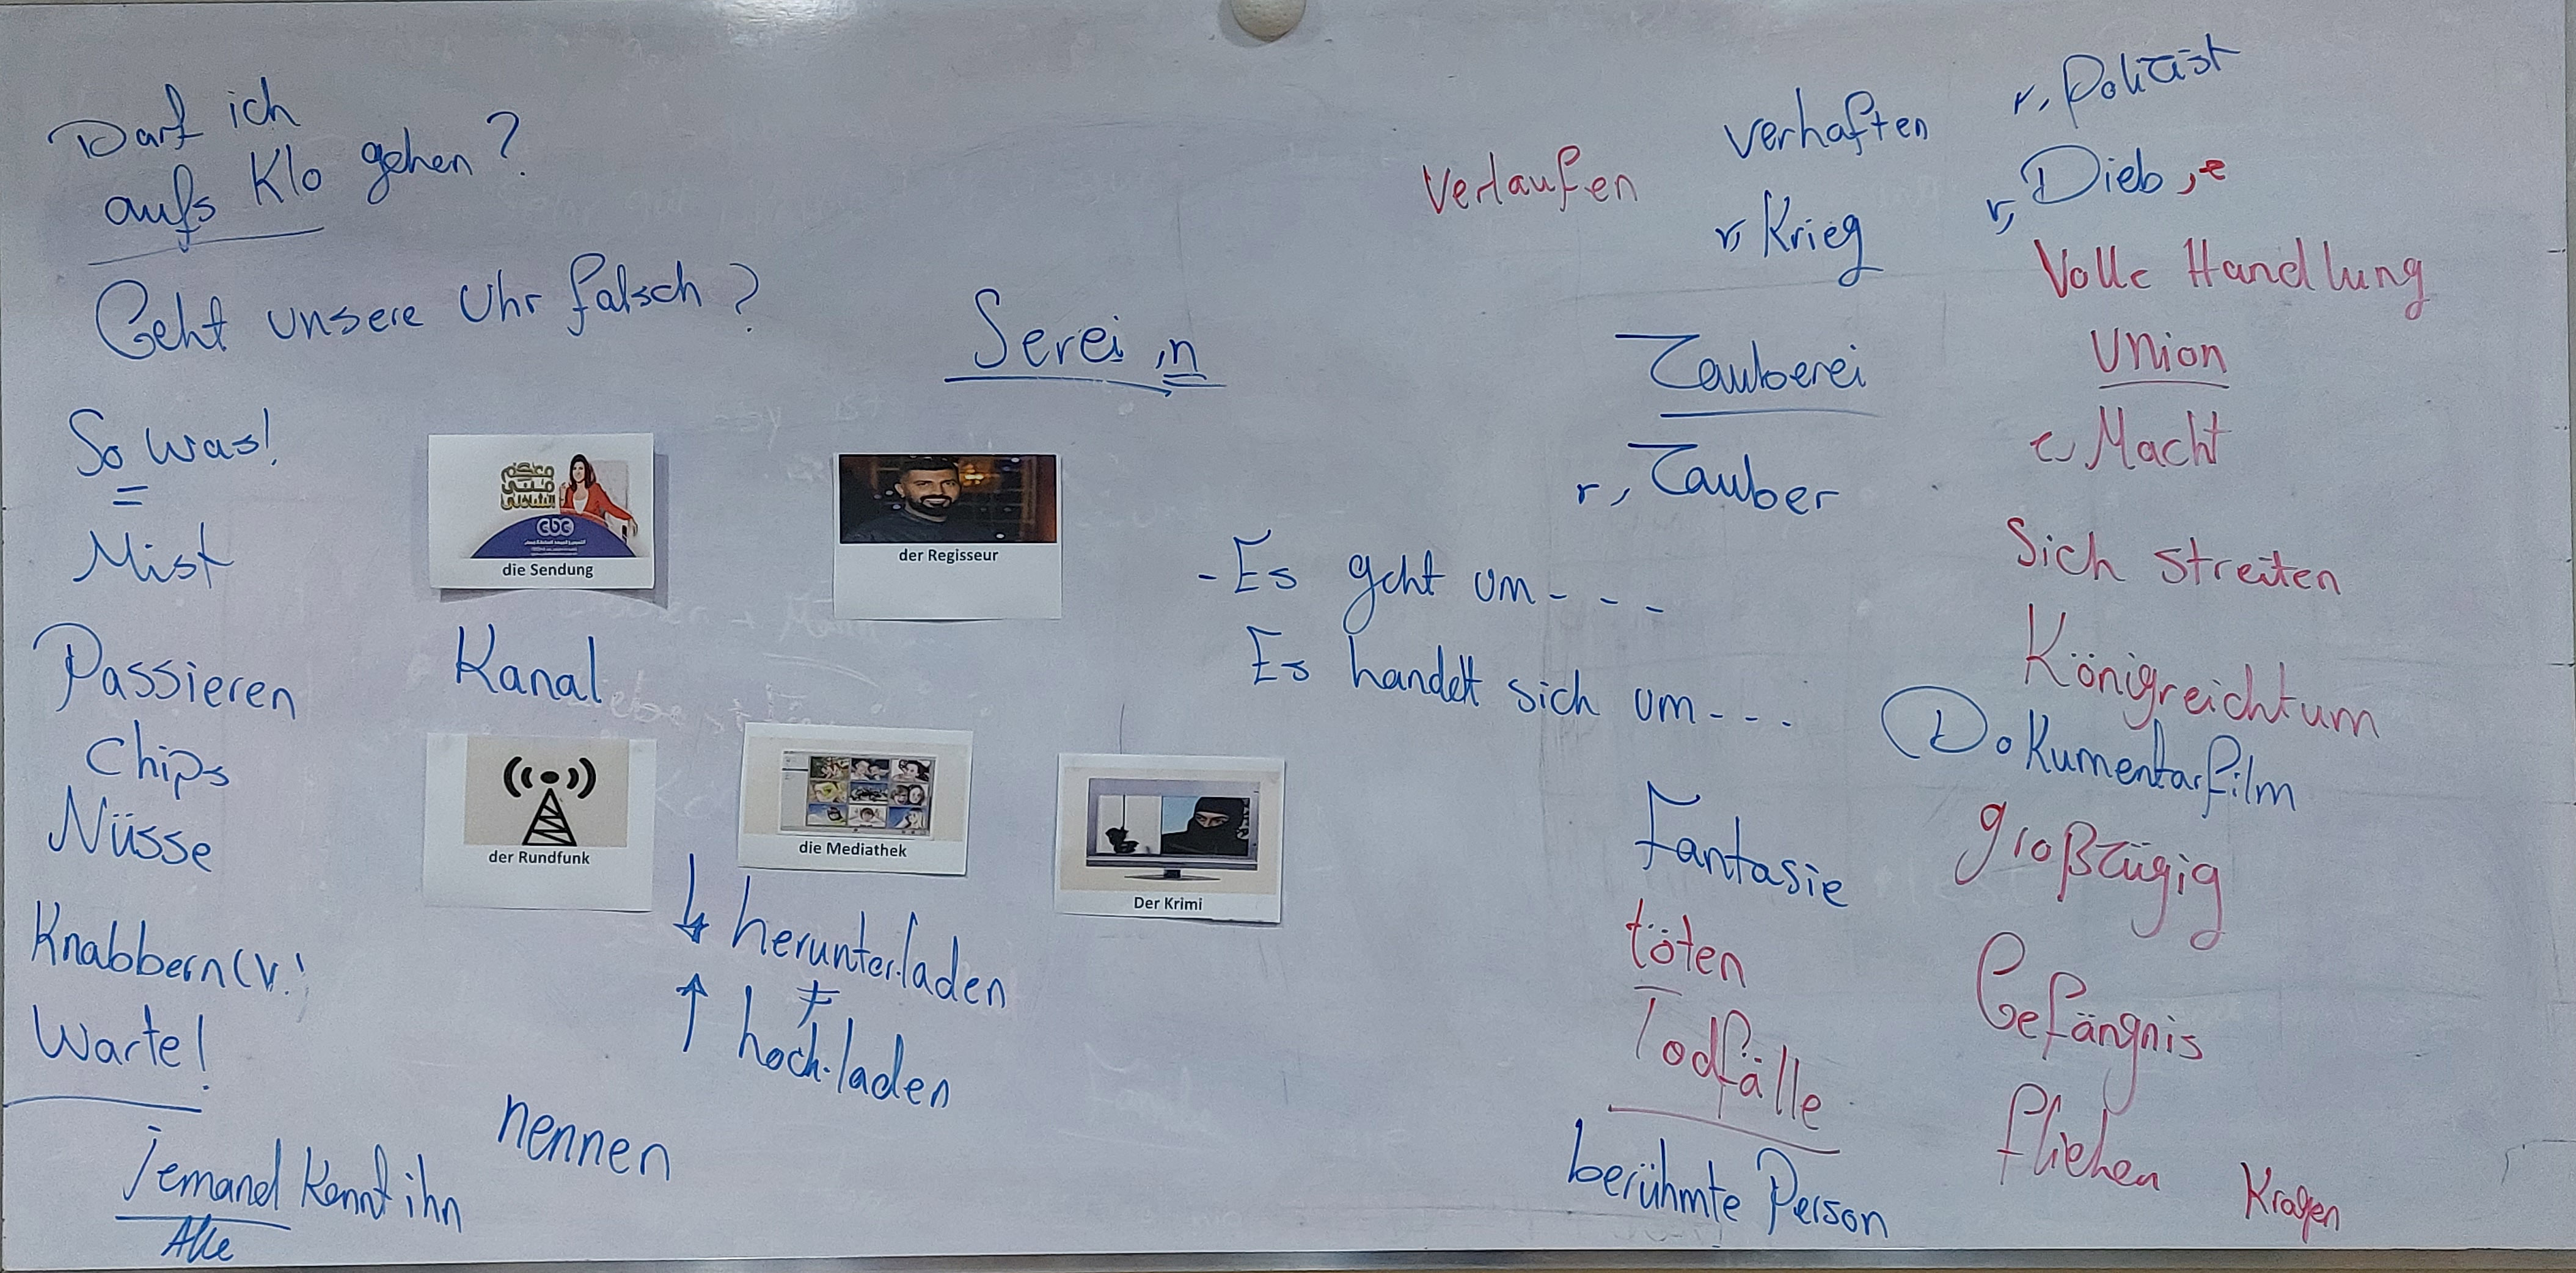 Darf ich
aufs Klo gehen?
Geht unsere Uhr falsch?
So was!
=
Mist
Passieren
Chips
Nüsse
Knabbern (v.)
Warte!
jemand kennt ihn
Alle
nennen
Serei ,n
معكم
منى
الشاذلي
cbc
die Sendung
der Regisseur
Kanal
der Rundfunk
die Mediathek
Der Krimi
↓ herunter.laden
≠
↑ hoch.laden
- Es geht um - - -
Es handelt sich um - - -
Verlaufen
verhaften
r, Krieg
Zauberei
r, Zauber
Fantasie
töten
Todfälle
berühmte Person
r, Polizist
r, Dieb ,e
Volle Handlung
Union
e, Macht
Sich streiten
Königreichtum
Dokumentarfilm
großzügig
Gefängnis
fliehen
Kragen